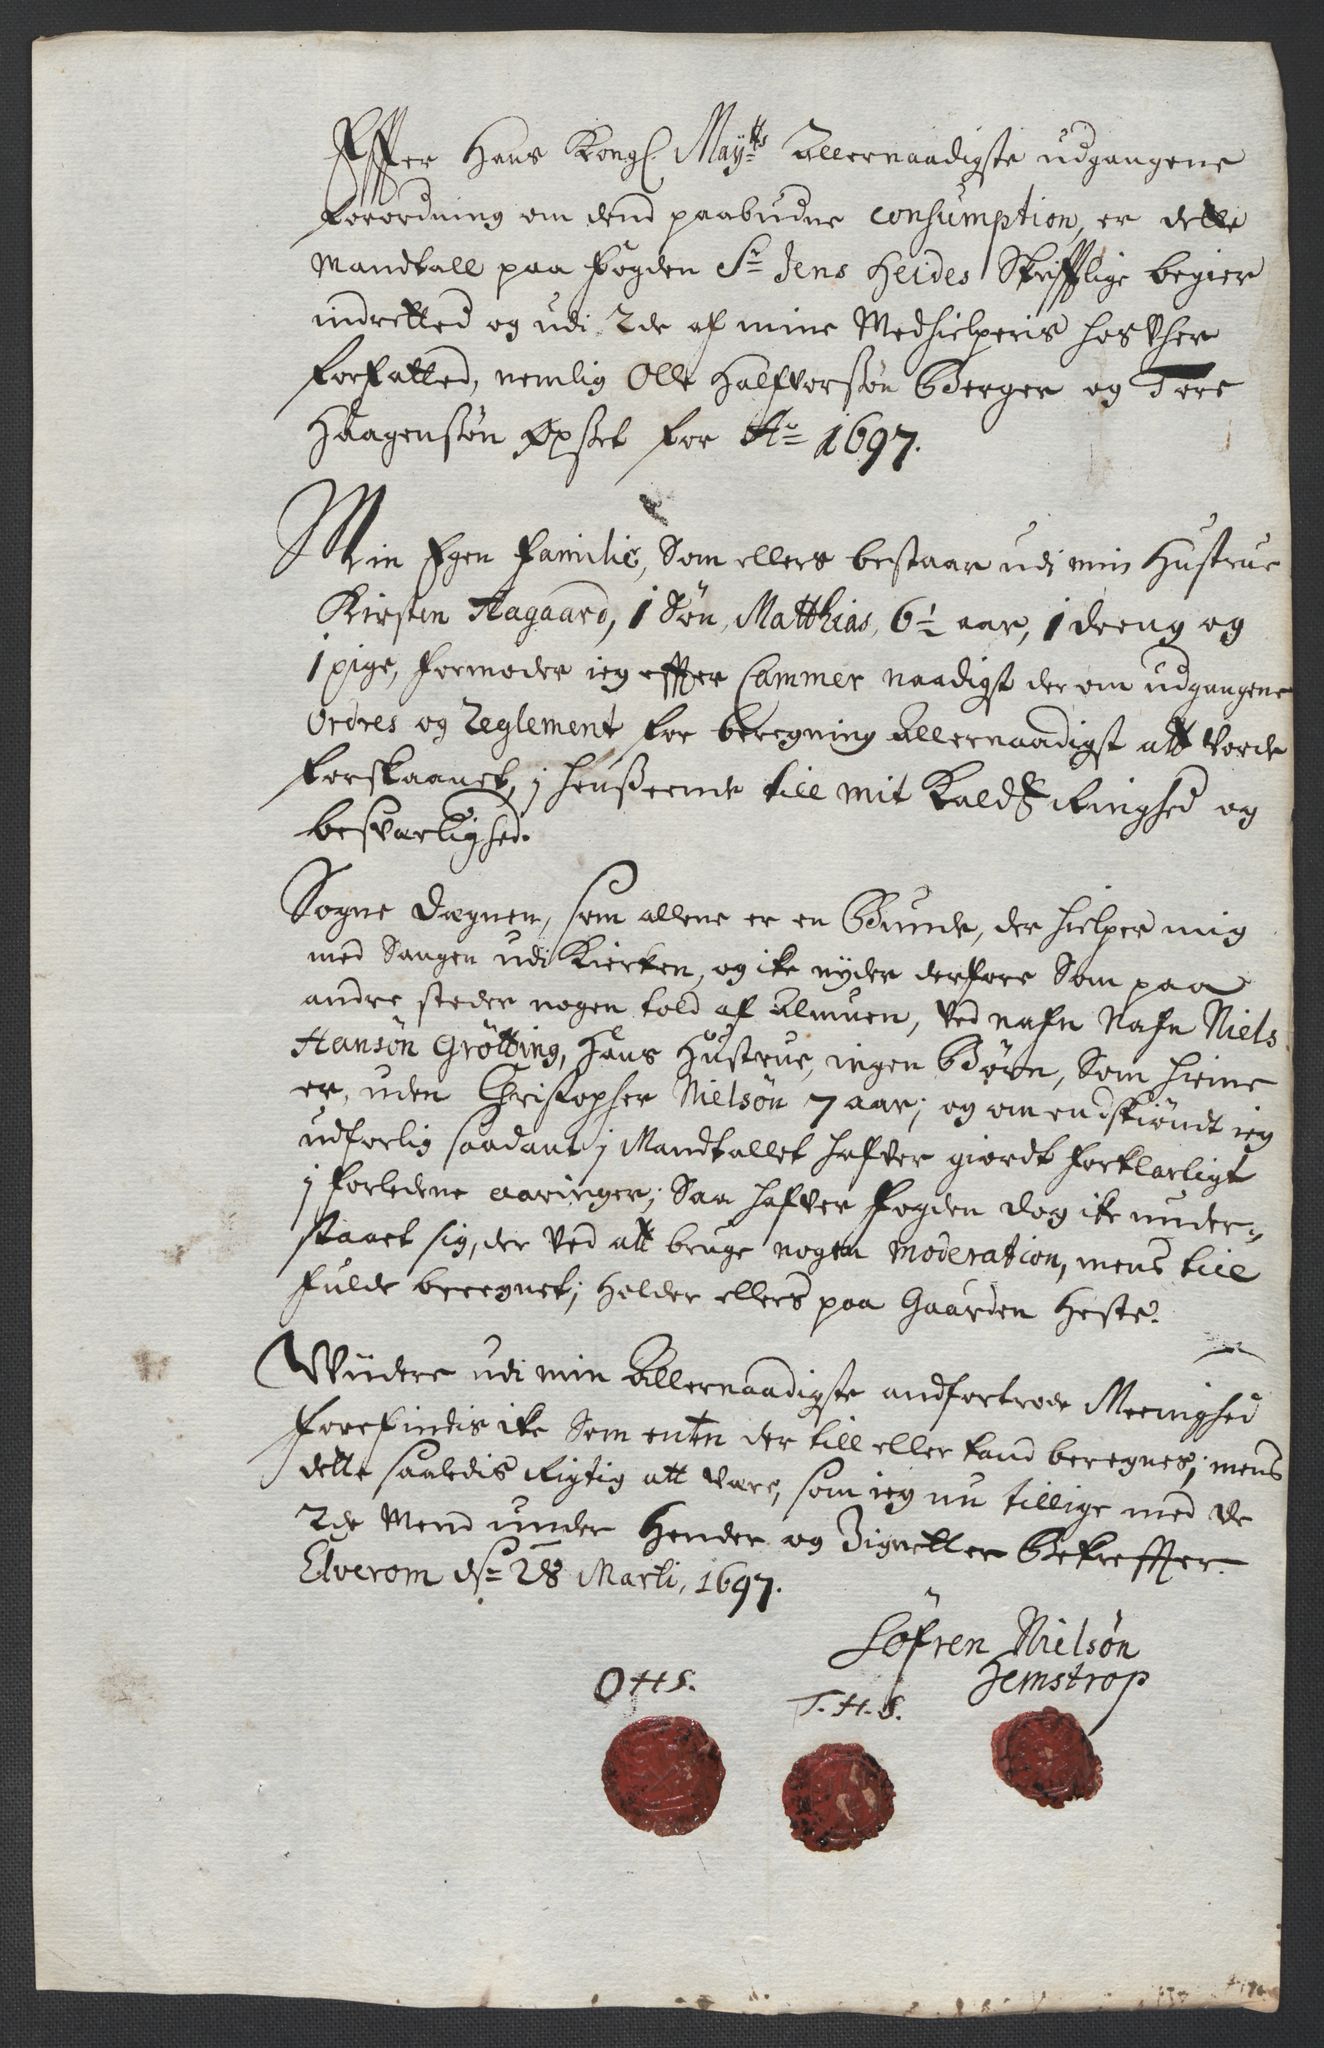 Effter Hans Kongl. Maÿtts Allernaadigste udgangene
forordning om dend paabudne Consumption, er dette
Mandtall paa fogden Sr Jens Heides Skrifftlige begier
indretted og udi 2de af mine Medhielperis hos Vher
forfatted, nemlig Olle Halfvorsøn Berger og Tore
Haagensøn Opset for Ao 1697.
Min Egen familie, Som ellers bestaar udi min Hustrue
Kirsten Aagaard, 1 Søn, Matthias, 6½ aar, 1 dreng og
1 pige, formoder ieg effter Cammer naadigst der om udgangene
Ordres og Reglement for beregning Allernaadigst att vorde
forskaanet, j henseende till mit Kalds Ringhed og
besværlighed.
Sogne Degnen, som allene er en Bunde, der hielper mig
med Sangen udi Kierken, og ike nyder derfore Som paa
andre steder nogen told af Almuen, ved nafn Nafn Niels
Hansøn Grøtting, Hans Hustrue, ingen Børn, Som hieme
er, uden Christopher Nielsøn 7 aar; og om endskiøndt ieg
udforlig saadant j Mandtallet hafver giordt forklarligt
j forledene aaringer; Saa hafver fogden dog ike under-
staaet sig, der ved att bruge nogen Moderation, mens till
fulde beregnet; Holder ellers paa Gaarden Heste.
Wiidere udi min Allernaadigste andfortrode Meenighed
forefindis ike Som enten der till eller kand beregnes; mens
dette saaledis Rigtig att være, som ieg nu tillige med de
2de Mend under Hender og Zignetter Bekreffter.
Elverom ds 28 Marti, 1697.
Søfren Nielsøn
Hemstrop
OHS.
T.H.S.